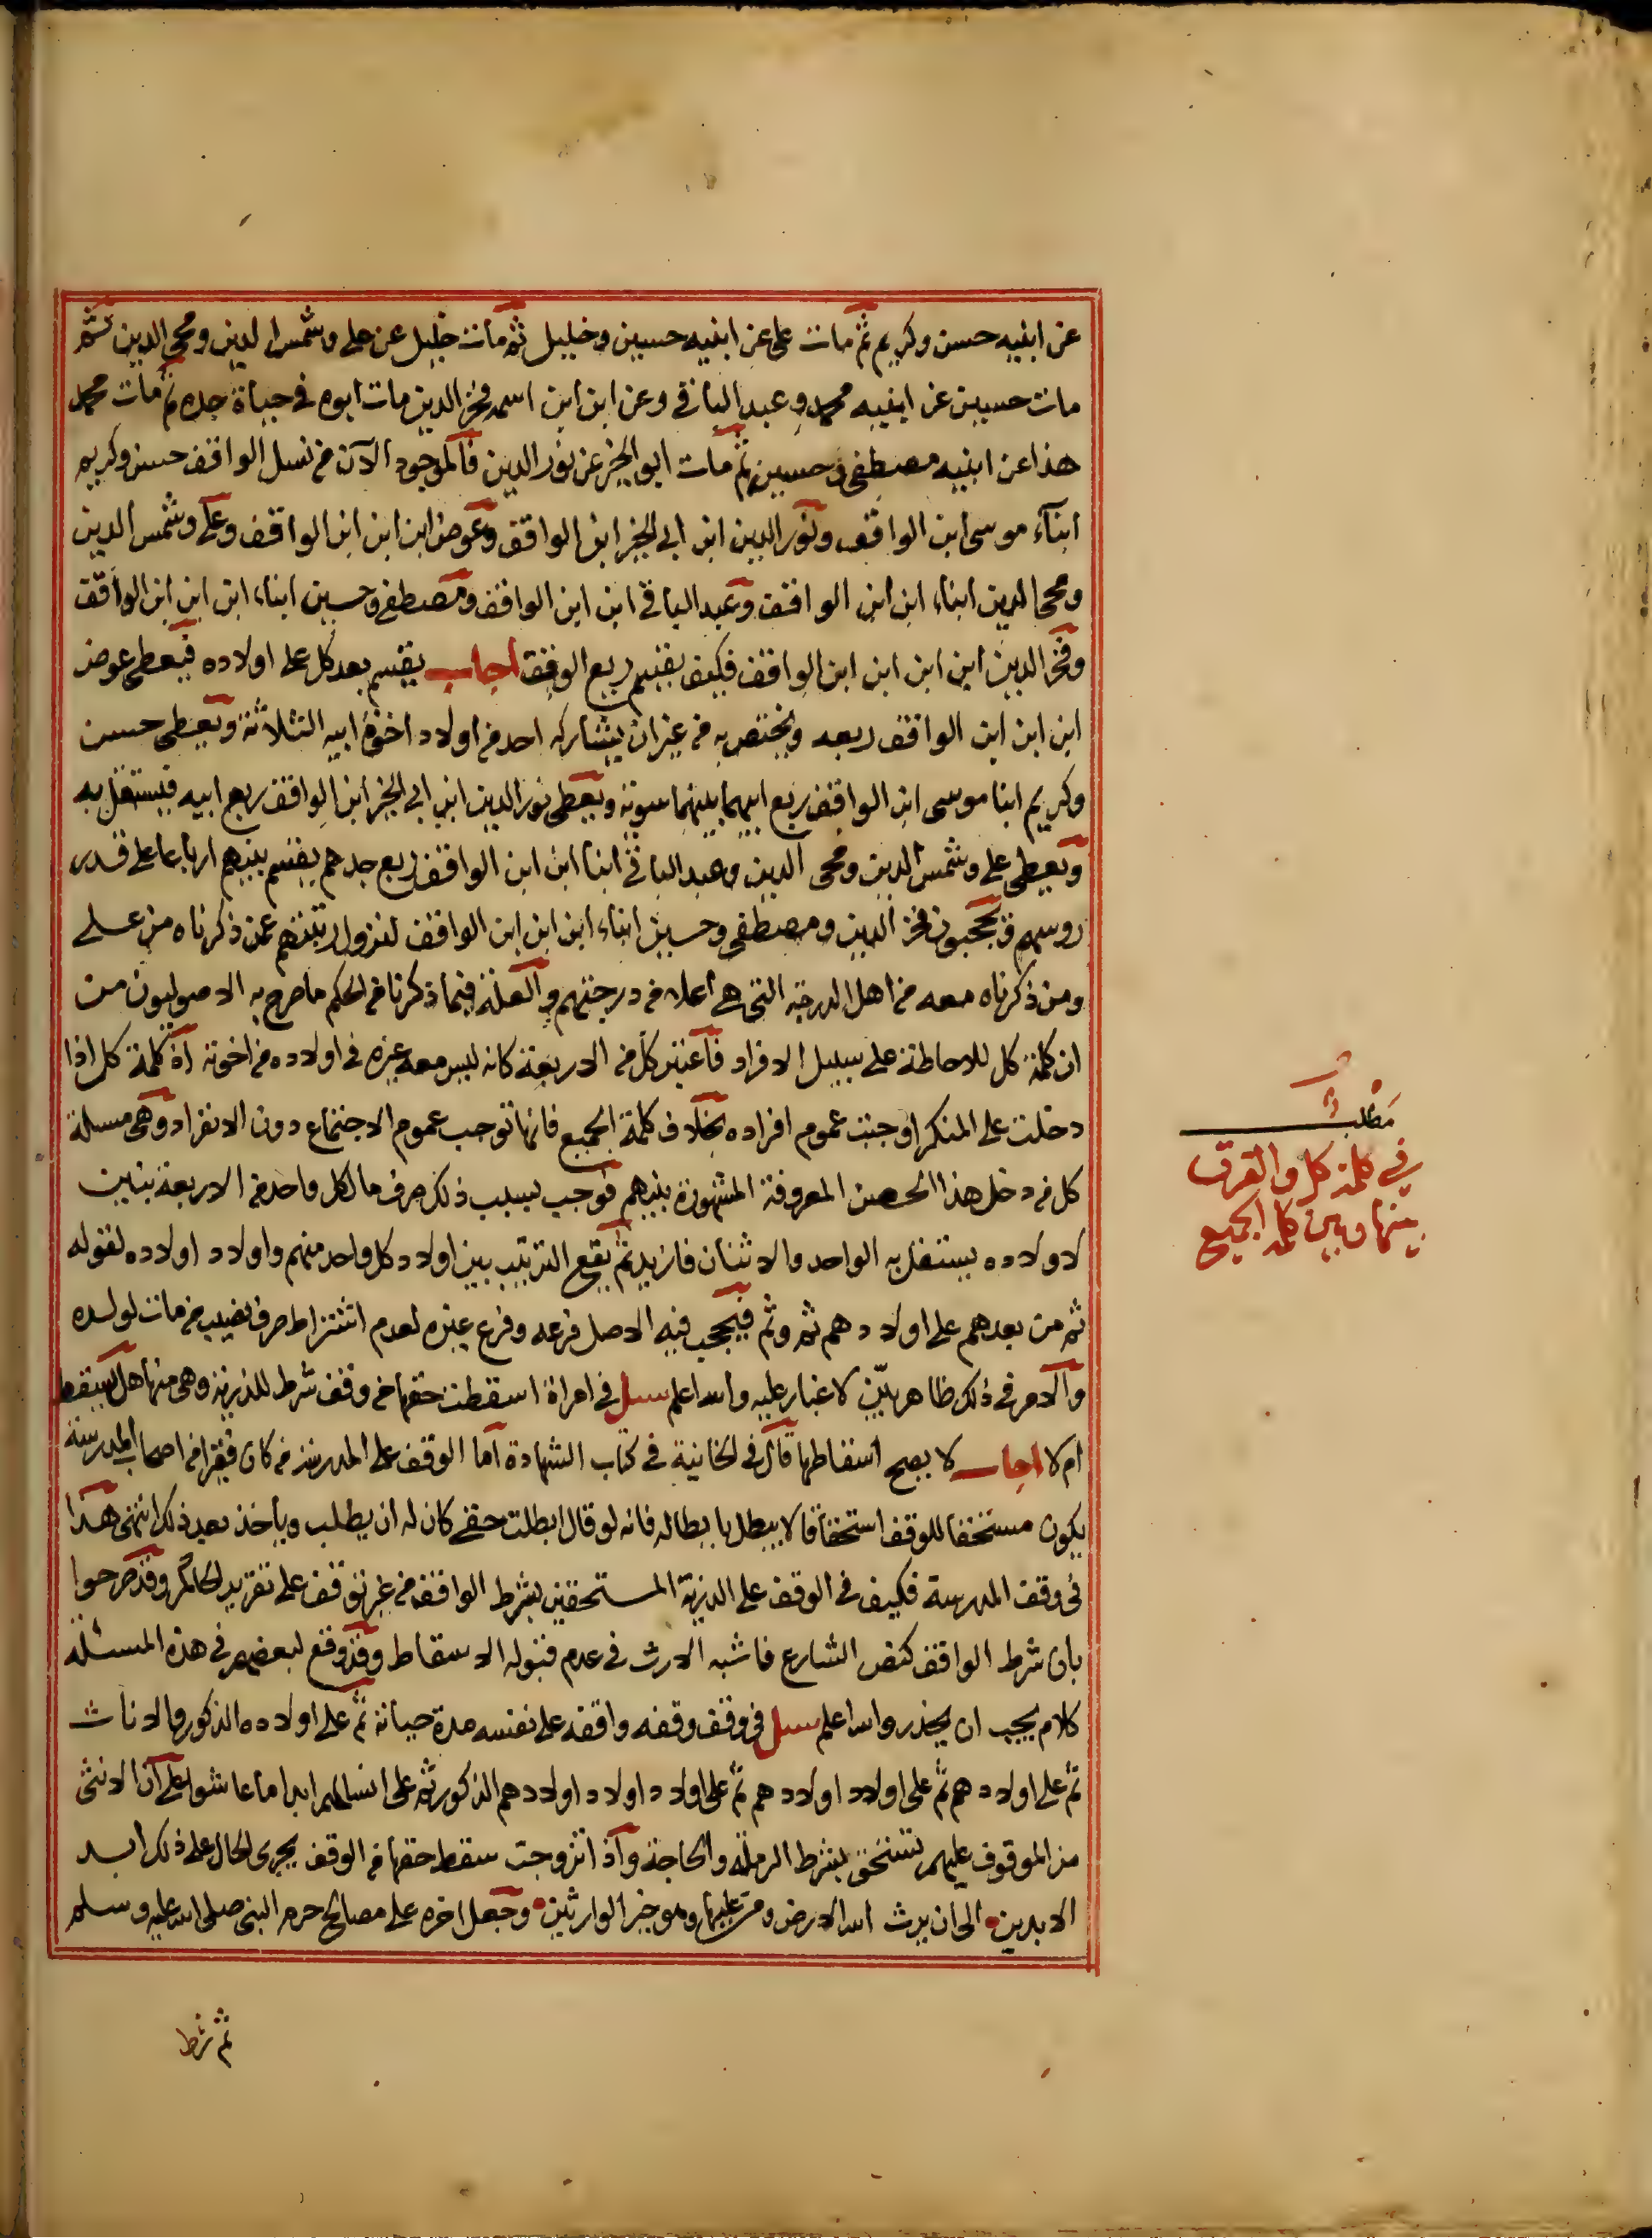 عن ابنيه حسن وكريم ثم مات على عن ابنيه حسين وخليل ثم مات خليل عن على وشمس الدين ومحى الدين ثم
مات حسين عن ابنيه محمد وعبد الباقى وعن ابن ابن اسمه فخر الدين مات ابوه فى حياة جده ثم مات محمد
هذا عن ابنيه مصطفى وحسين ثم مات ابو الخير عن نور الدين فالموجود الآن من نسل الواقف حسن وكريم
ابناء موسى ابن الواقف ونور الدين ابن ابى الخير ابن الواقف وعوض ابن ابن ابن الواقف وعلى وشمس الدين
ومحى الدين ابناء ابن ابن الواقف وعبد الباقى ابن ابن الواقف ومصطفى وحسين ابناء ابن ابن ابن الواقف
وفخر الدين ابن ابن ابن ابن الواقف فكيف يقسم ريع الوقف اجاب يقسم بعد كل على اولاده فيعطى عوض
ابن ابن ابن الواقف ربعه ويختص به من غير ان يشاركه احد من اولاد اخوة ابيه الثلاثة ويعطى حسن
وكريم ابنا موسى ابن الواقف ربع ابيهما بينهما سوية ويعطى نور الدين ابن ابى الخير ابن الواقف ربع ابيه فيستقل به
ويعطى على وشمس الدين ومحى الدين وعبد الباقى ابنا ابن ابن الواقف ربع جدهم يقسم بينهم ارباعا على قدر
روسهم ويحجبون فخر الدين ومصطفى وحسين ابناء ابن ابن ابن الواقف لنزول رتبتهم عمن ذكرناه من على
ومن ذكرناه معه من اهل الدرجة التى هى اعلا من درجتهم والعلة فيما ذكرنا من الحكم ما صرح به الاصوليون من
ان كلمة كل للاحاطة على سبيل الافراد فاعتبر كل من الاربعة كانه ليس معه غيره فى اولاده من اخوته اذ كلمة كل اذا
دخلت على المنكر اوجبت عموم افراده بخلاف كلمة الجميع فانها توجب عموم الاجتماع دون الانفراد وهى مسئلة
كل من دخل هذا الحصن المعروفة المشهورة بينهم فوجب بسبب ذلك صرف ما لكل واحد من الاربعة بنايب
لاولاده يستقل به الواحد والاثنان فازيد ثم يقع الترتيب بين اولاد كل واحد منهم واولاد اولاده لقوله
ثم من بعدهم على اولادهم ثم وثم فيحجب فيه الاصل فرعه وفرع غيره لعدم اشتراط صرف نصيب من مات لولده
والامر فى ذلك ظاهر بيّن لا غبار عليه والله اعلم سئل فى امراة اسقطت حقها من وقف شرط للذرية وهى منها هل يسقط
ام لا اجاب لا يصح اسقاطها قال فى الخانية فى كتاب الشهادة اما الوقف على المدرسة من كان فقيرا من اصحاب المدرسة
يكون مستحقا للوقف استحقاقا لا يبطل بابطاله فانه لو قال ابطلت حقى كان له ان يطلب وياخذ بعد ذلك انتهى هذا
فى وقف المدرسة فكيف فى الوقف على الذرية المستحقين بشرط الواقف من غير توقف على تقرير الحاكم وقد صرحوا
بان شرط الواقف كنص الشارع فاشبه الارث فى عدم قبوله الاسقاط وقد وقع لبعضهم فى هذه المسئلة
كلام يجب ان يحذر والله اعلم سئل فى وقف وقفه واقفه على نفسه مدة حياته ثم على اولاده الذكور والاناث
ثم على اولادهم ثم على اولاد اولادهم ثم على اولاد اولاد اولادهم الذكور ثم على انسالهم ابدا ما عاشوا على ان الانثى
من الموقوف عليهم تستحق بشرط الرملة والحاجة واذا تزوجت سقط حقها من الوقف يجرى الحال على ذلك ابد
الابدين الى ان يرث الله الارض ومن عليها وهو خير الوارثين وجعل اخره على مصالح حرم النبى صلى الله عليه وسلم
ثم شرط
مطلب
فى كلمة كل والفرق
بينها وبين كلمة الجميع